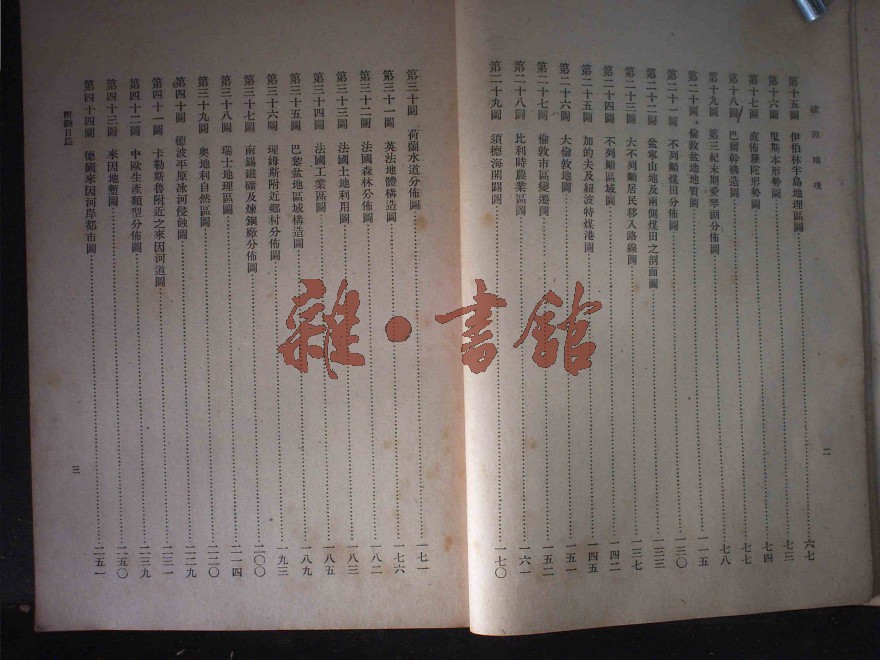 歐洲地理
第十五圖 伊伯林半島地理區圖 六七
第十六圖 里斯本形勢圖 七三
第十七圖 直佈羅陀形勢圖 七四
第十八圖 巴爾幹構造圖 七七
第十九圖 第三紀末期愛琴湖分佈圖 七八
第二十圖 倫敦盆地地質圖 一一五
第二十一圖 不列顛煤田分佈圖 一三〇
第二十二圖 盆寧山地及兩個煤田之剖面圖 一三三
第二十三圖 大不列顛居民移入路線圖 一三七
第二十四圖 不列顛區域圖 一四二
第二十五圖 加的夫及紐波特煤港圖 一四五
第二十六圖 大倫敦地圖 一五一
第二十七圖 倫敦市區變遷圖 一五二
第二十八圖 比利時農業區圖 一六一
第二十九圖 須德海開闢圖 一七〇
二
第三十圖 荷蘭水道分佈圖 一七一
第三十一圖 英法地體構造圖 一七六
第三十二圖 法國森林分佈圖 一八二
第三十三圖 法國土地利用圖 一八三
第三十四圖 法國工業區圖 一八五
第三十五圖 巴黎盆地區域構造圖 一八九
第三十六圖 理姆斯附近鄉村分佈圖 一九三
第三十七圖 南錫鐵礦及煉鋼廠分佈圖 二〇〇
第三十八圖 瑞士地理區圖 二一四
第三十九圖 奧地利自然區圖 二二〇
第四十圖 德波平原冰河侵蝕圖 二二九
第四十一圖 卡勒斯魯附近之來因河道圖 二三一
第四十二圖 中歐生產類型分佈圖 二三九
第四十三圖 來因地塹圖 二五〇
第四十四圖 德國來因河岸都市圖 二五一
附圖目錄
三
雜·書館